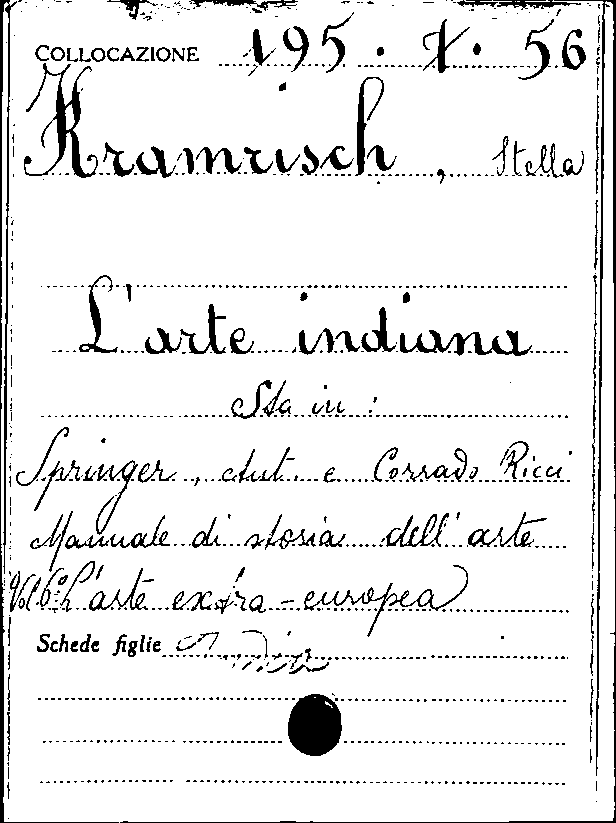 COLLOCAZIONE 195 . 7. 56
Kramrisch, Stella
L'arte indiana
Sta in :
Springer, Aut. e Corrado Ricci
Manuale di storia dell'arte
Vol 6º: L'arte extra-europea
Schede figlie